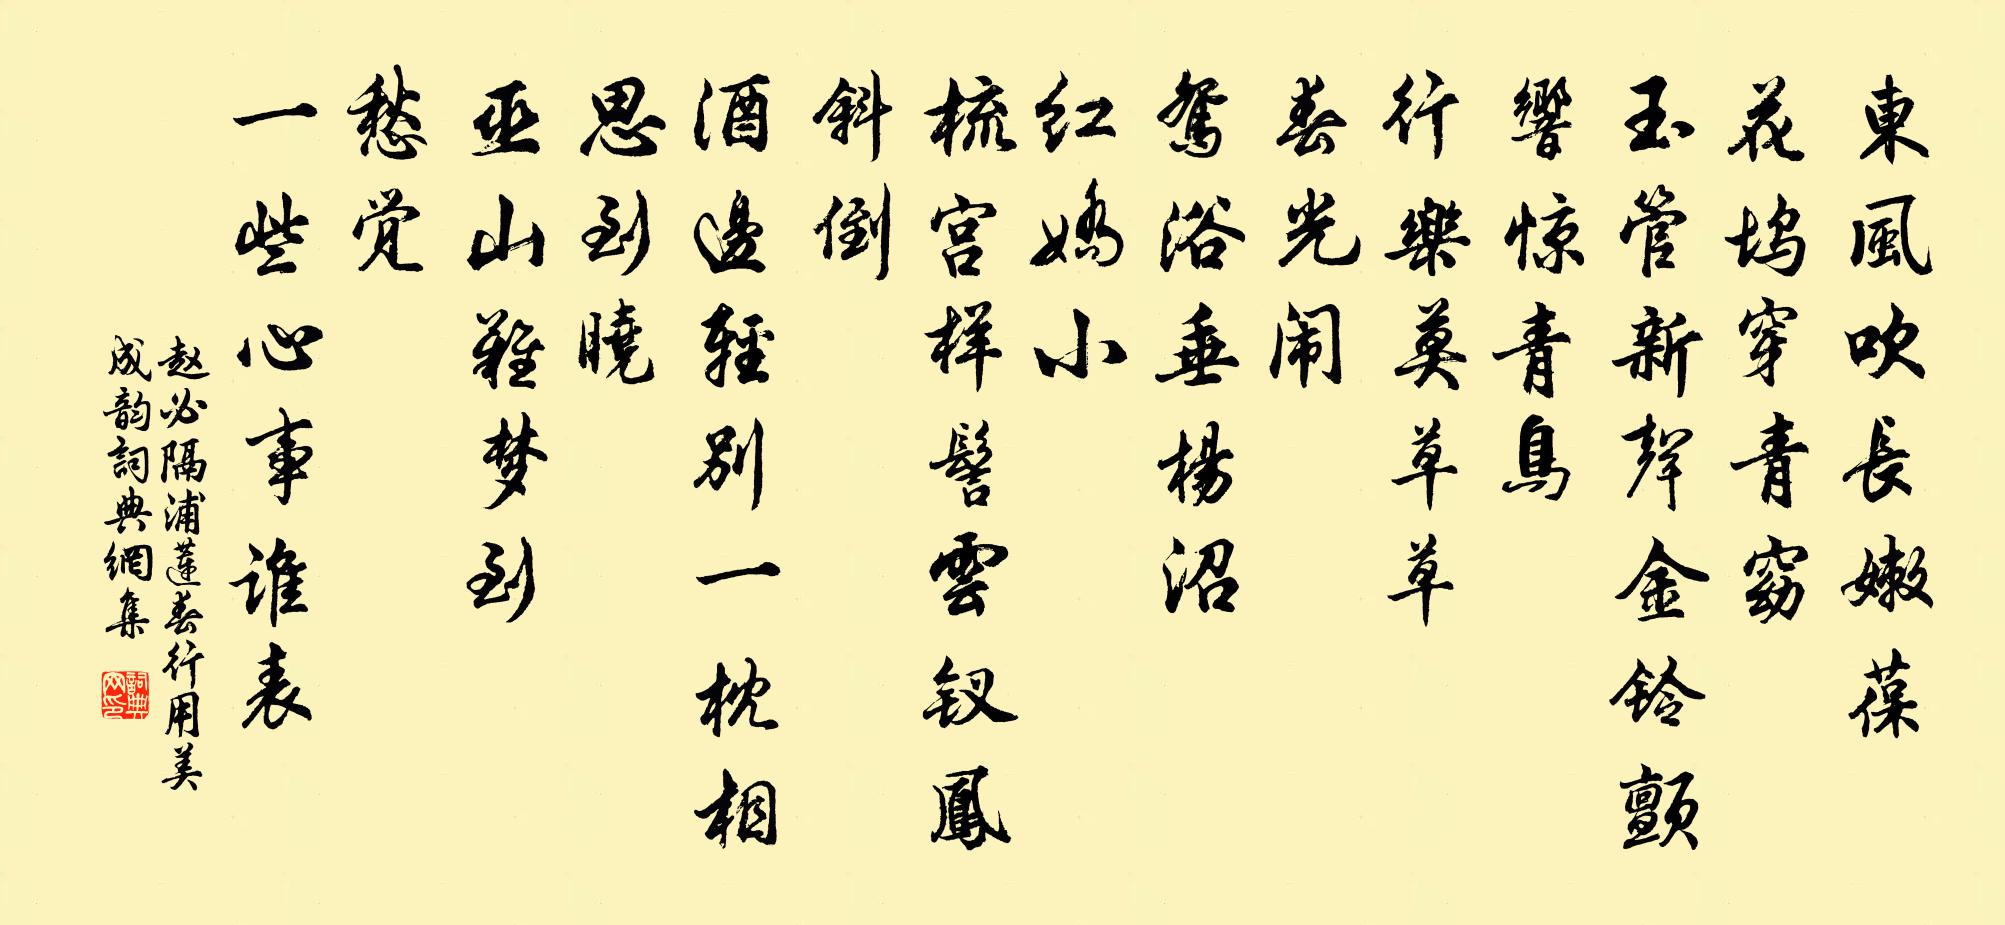 東風吹長嫩葆
花塢穿青窈
玉管新聲金鈴顫
響惊青鳥
行樂莫草草
春光闹
鸳浴垂楊沼
红嬌小
梳宫样髻雲钗鳳
斜倒
酒邊輕别一枕相
思到曉
巫山難梦到
愁觉
一些心事谁表
赵必隔浦蓮春行用美
成韵詞典網集
詞典
网印